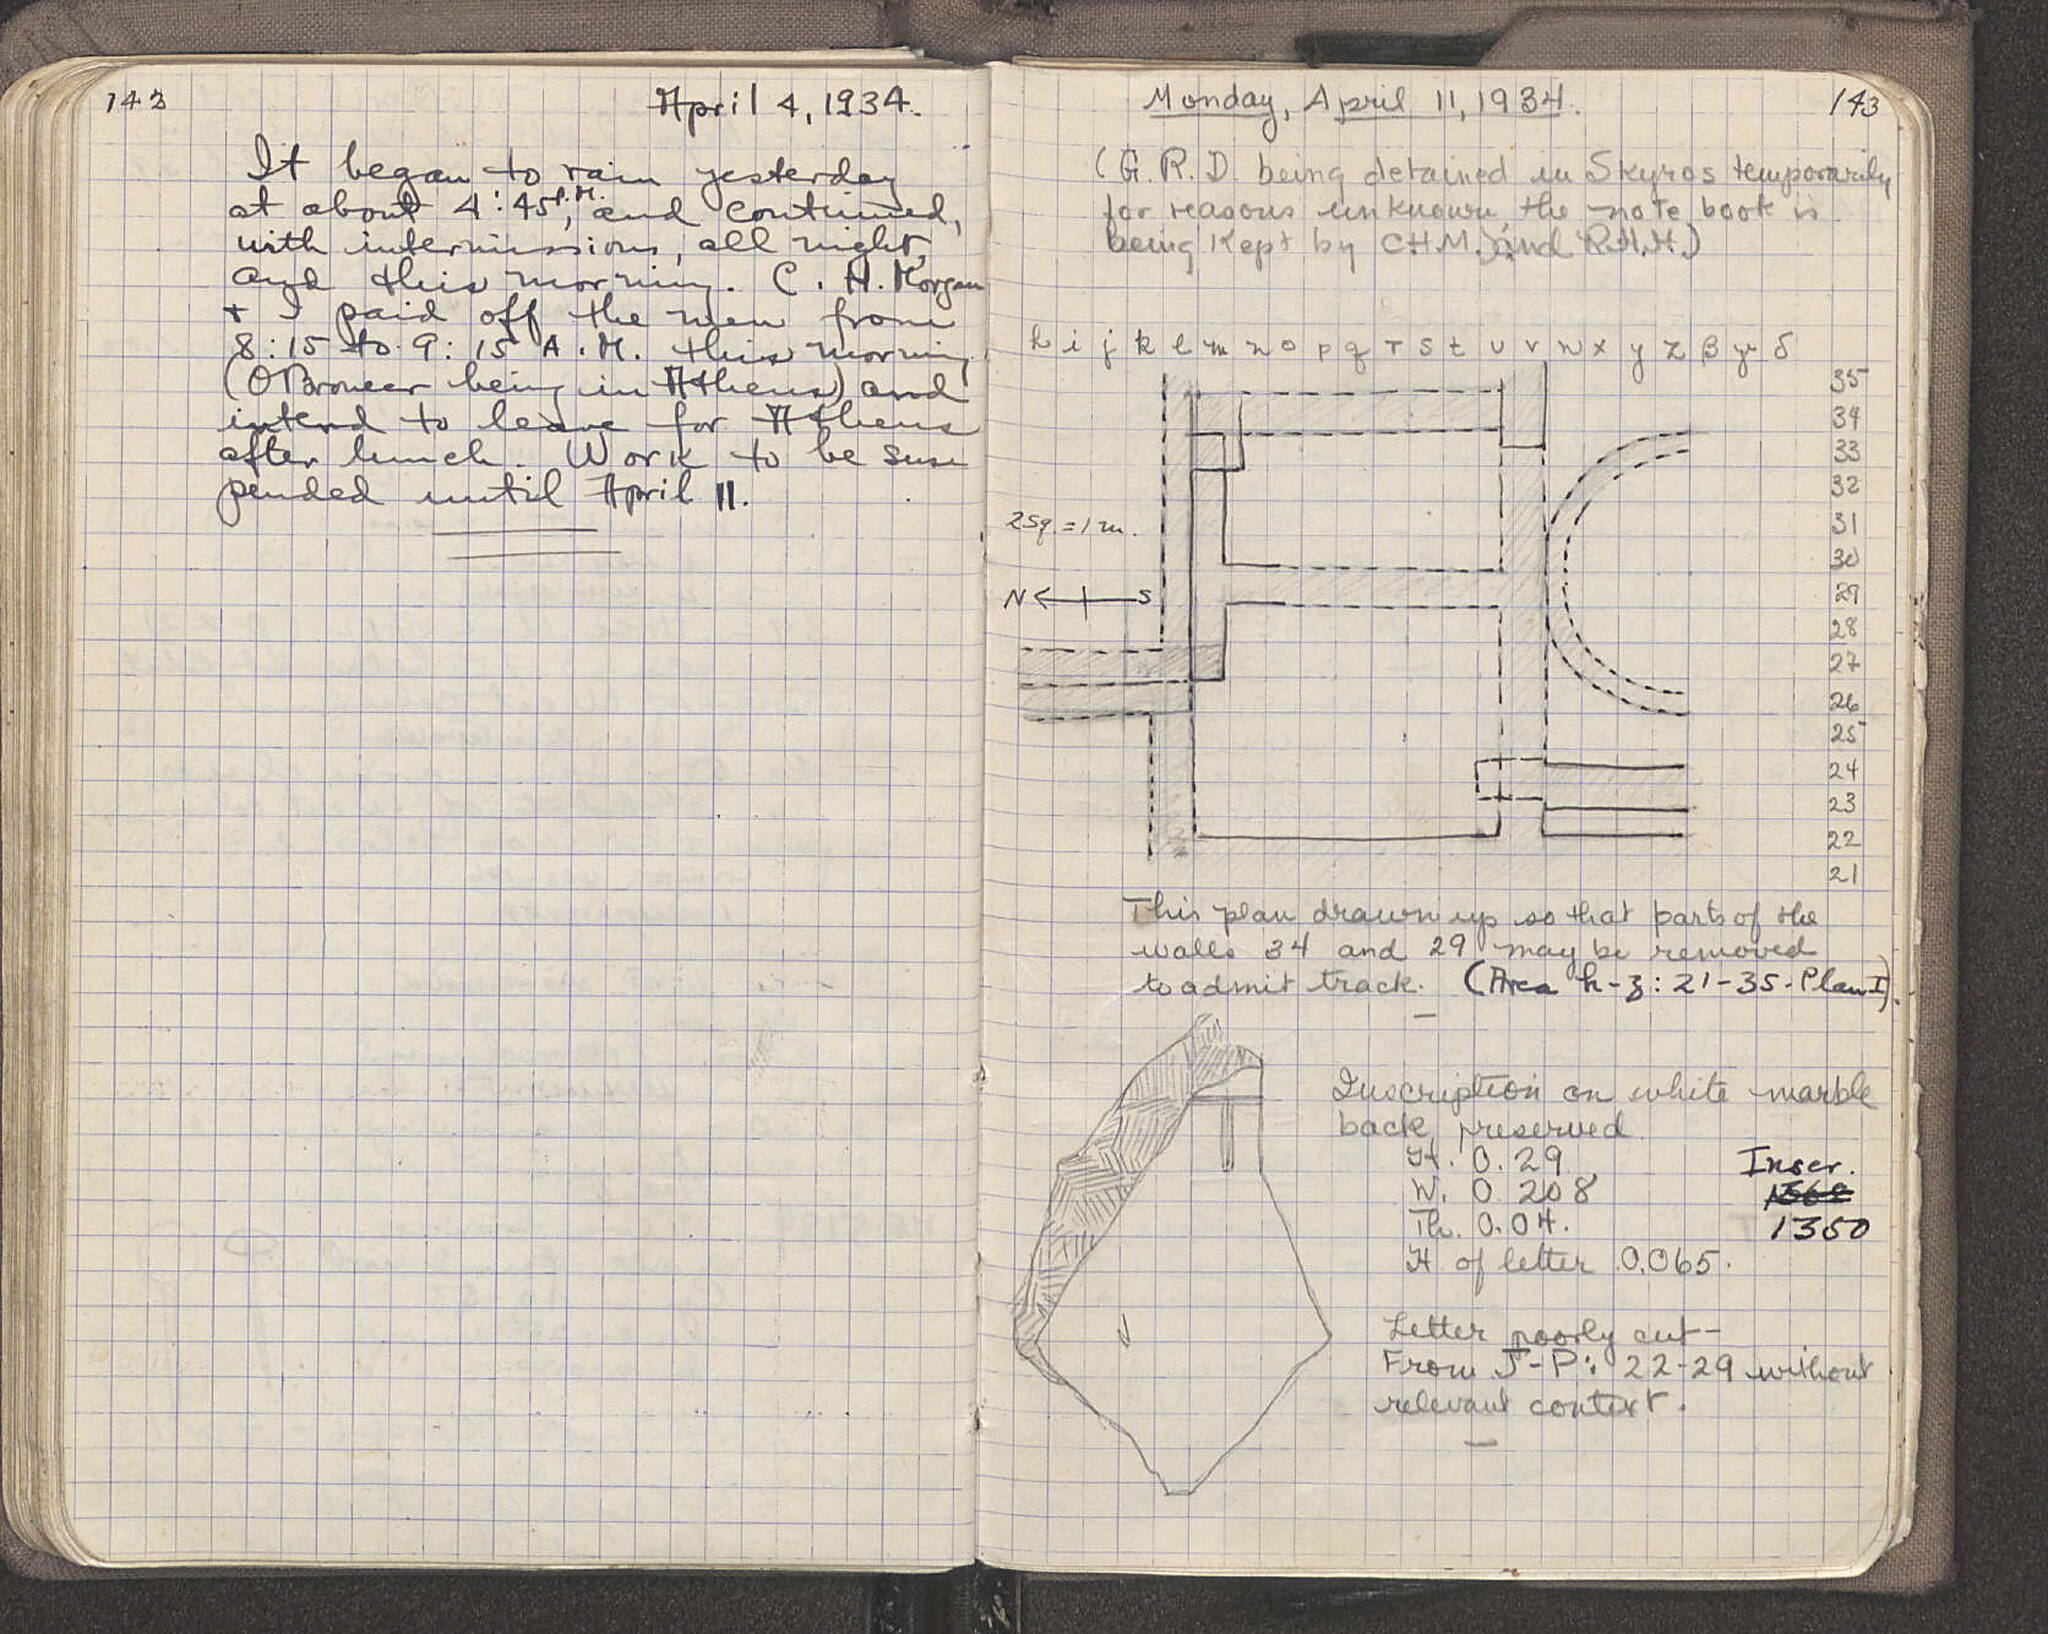 142
April 4, 1934.
It began to rain yesterday
at about 4:45 P.M., and continued,
with intermissions, all night,
and this morning. C. H. Morgan
+ I paid off the men from
8:15 to 9:15 A.M. this morning
(O Broneer being in Athens) and
intend to leave for Athens
after lunch. Work to be sus
pended until April 11.
Monday, April 11, 1934.
143
(G.R.D. being detained in Skyros temporarily
for reasons unknown, the note book is
being kept by C.H.M. and R.H.H.)
h i j k l m n o p q r s t u v w x y z β γ δ
35
34
33
32
2 sq. = 1 m.
31
30
N S
29
28
27
26
25
24
23
22
21
This plan drawn up so that parts of the
walls 34 and 29 may be removed
to admit track. (Area h-z: 21-35 - Plan I).
Inscription on white marble
back preserved
H. 0.29
Inscr.
W. 0.208
1568
Th. 0.04.
1350
H of letter 0.065.
Letter poorly cut-
From J-P: 22-29 without
relevant context.